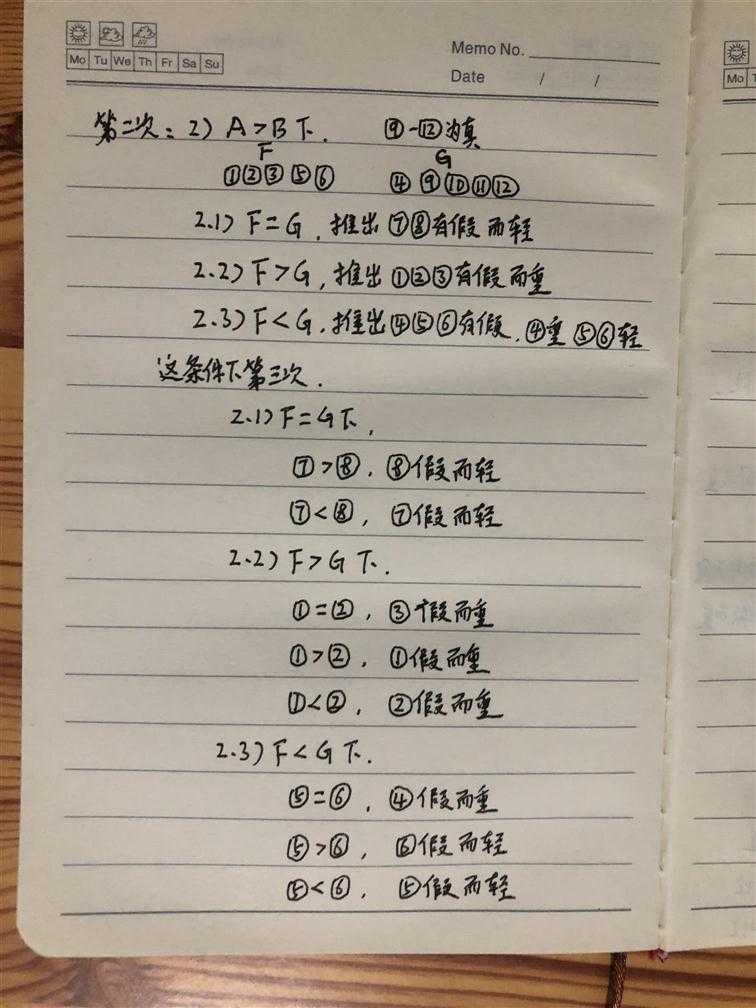 Memo No.
Mo Tu We Th Fr Sa Su
Date / /
Mo
第二次：2) A>B下. ⑨-⑫为真
F G
①②③ ⑤⑥ ④ ⑨⑩⑪⑫
2.1) F=G, 推出⑦⑧有假而轻
2.2) F>G, 推出①②③有假而重
2.3) F<G, 推出④⑤⑥有假, ④重⑤⑥轻
这条件下第三次.
2.1) F=G下,
⑦>⑧, ⑧假而轻
⑦<⑧, ⑦假而轻
2.2) F>G下.
①=②, ③假而重
①>②, ①假而重
①<②, ②假而重
2.3) F<G下.
⑤=⑥, ④假而重
⑤>⑥, ⑥假而轻
⑤<⑥, ⑤假而轻